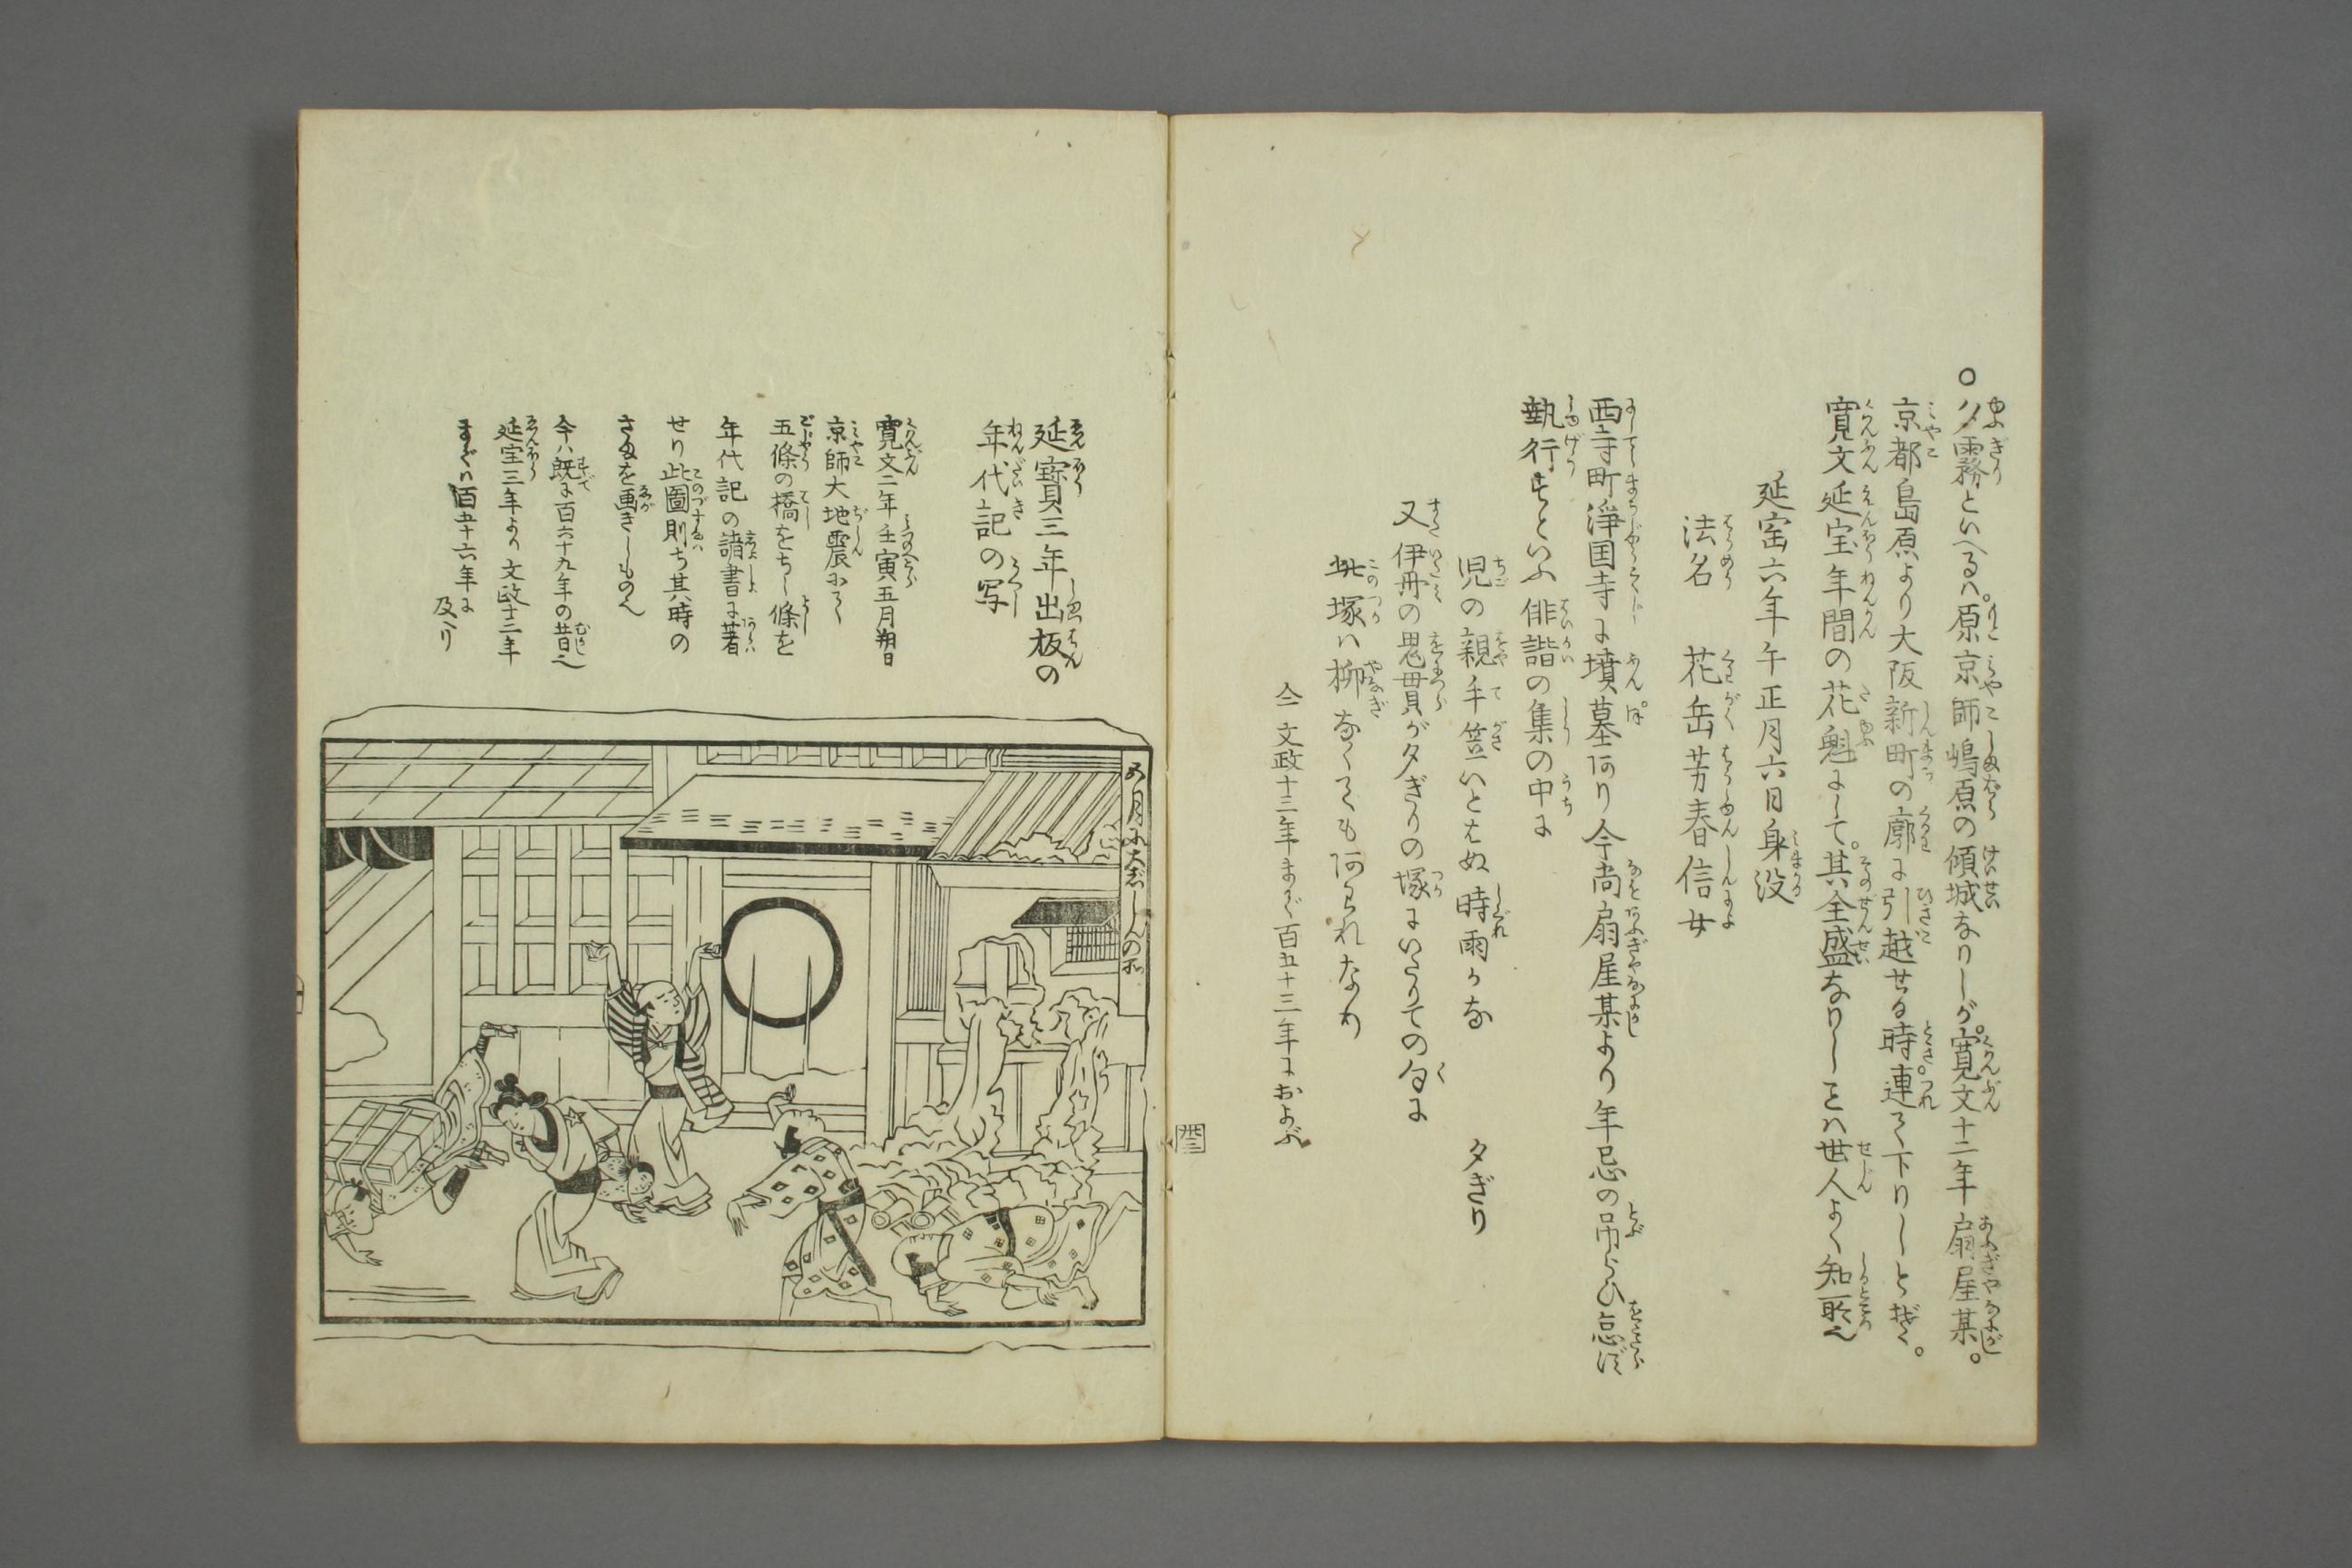 ○夕霧といへるハ。原京師嶋原の傾城なりしが。寛文十二年扇屋某。
京都島原より大阪新町の廓に引越せる時。連て下りしとぞ。
寛文延宝年間の花魁にして。其全盛なりしことハ世人よく知所也
延宝六年午正月六日身没
法名　花岳芳春信女
西寺町浄国寺に墳墓あり今尚扇屋某より年忌の吊らひ怠ず
執行すといふ俳諧の集の中に
児の親手笠いとはぬ時雨かな　夕ぎり
又伊丹の鬼貫が夕ぎりの塚にいたりての句に
此塚ハ柳なくてもあはれなり
仝 文政十三年まで百五十三年におよぶ
丗三
延寶三年出板の
年代記の写
寛文二年壬寅五月朔日
京師大地震にて
五條の橋をちし條を
年代記の諸書に著
せり此圖則ち其時の
さまを画きしもの也
今ハ既に百六十九年の昔也
延宝三年より文政十三年
までハ百五十六年に
及べり
五月に大ぢしんの所